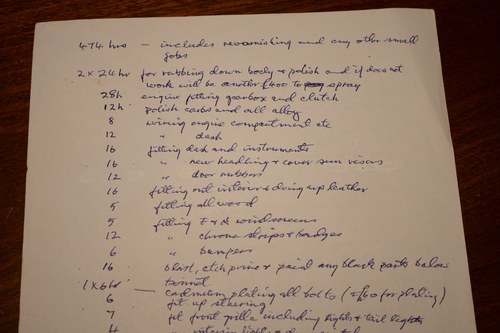 474 hrs — includes revarnishing and any other small
jobs
2 x 24 hr for rubbing down body & polish and if does not
work will be another £100 to spray
28h engine fitting gearbox and clutch
12h polish carbs and all alloy
8 wiring engine compartment etc
12 " dash
16 fitting dash and instruments
16 " new headling & cover sun visors
12 " door rubbers
16 fitting out interior & doing up leather
5 fitting all wood
5 fitting F & R windscreens
12 " chrome strips & badges
6 " bumpers
16 blast, etch prime & paint any black parts below
1 x 6hr tunnel
6 — cadmium plating all bolts (+ £60 for plating)
fit up steering
7 fit front grille including lights & tail lights
4 interior lights